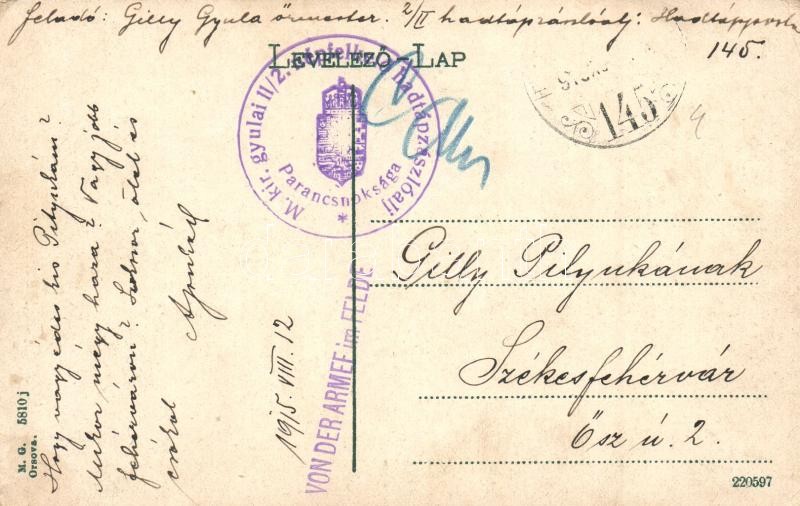 Feladó: Gilly Gyula őrmester. 2/II hadtápzászlóalj: Hadtápposta
145.
LEVELEZŐ-LAP
M. kir. gyulai II/2. népfelkelő hadtápzászlóalj
Parancsnoksága
*
145
Hogy vagy édes kis Pityukám?
Mikor mégy haza? Vagy jobb
Fehérváron? Sokszor ölel és
csókol
Apukád
1915. VIII. 12
VON DER ARMEE im FELDE
Gilly Pityukának
Székesfehérvár
Ősz u. 2.
M. G. 5810 j
Orsova.
220597